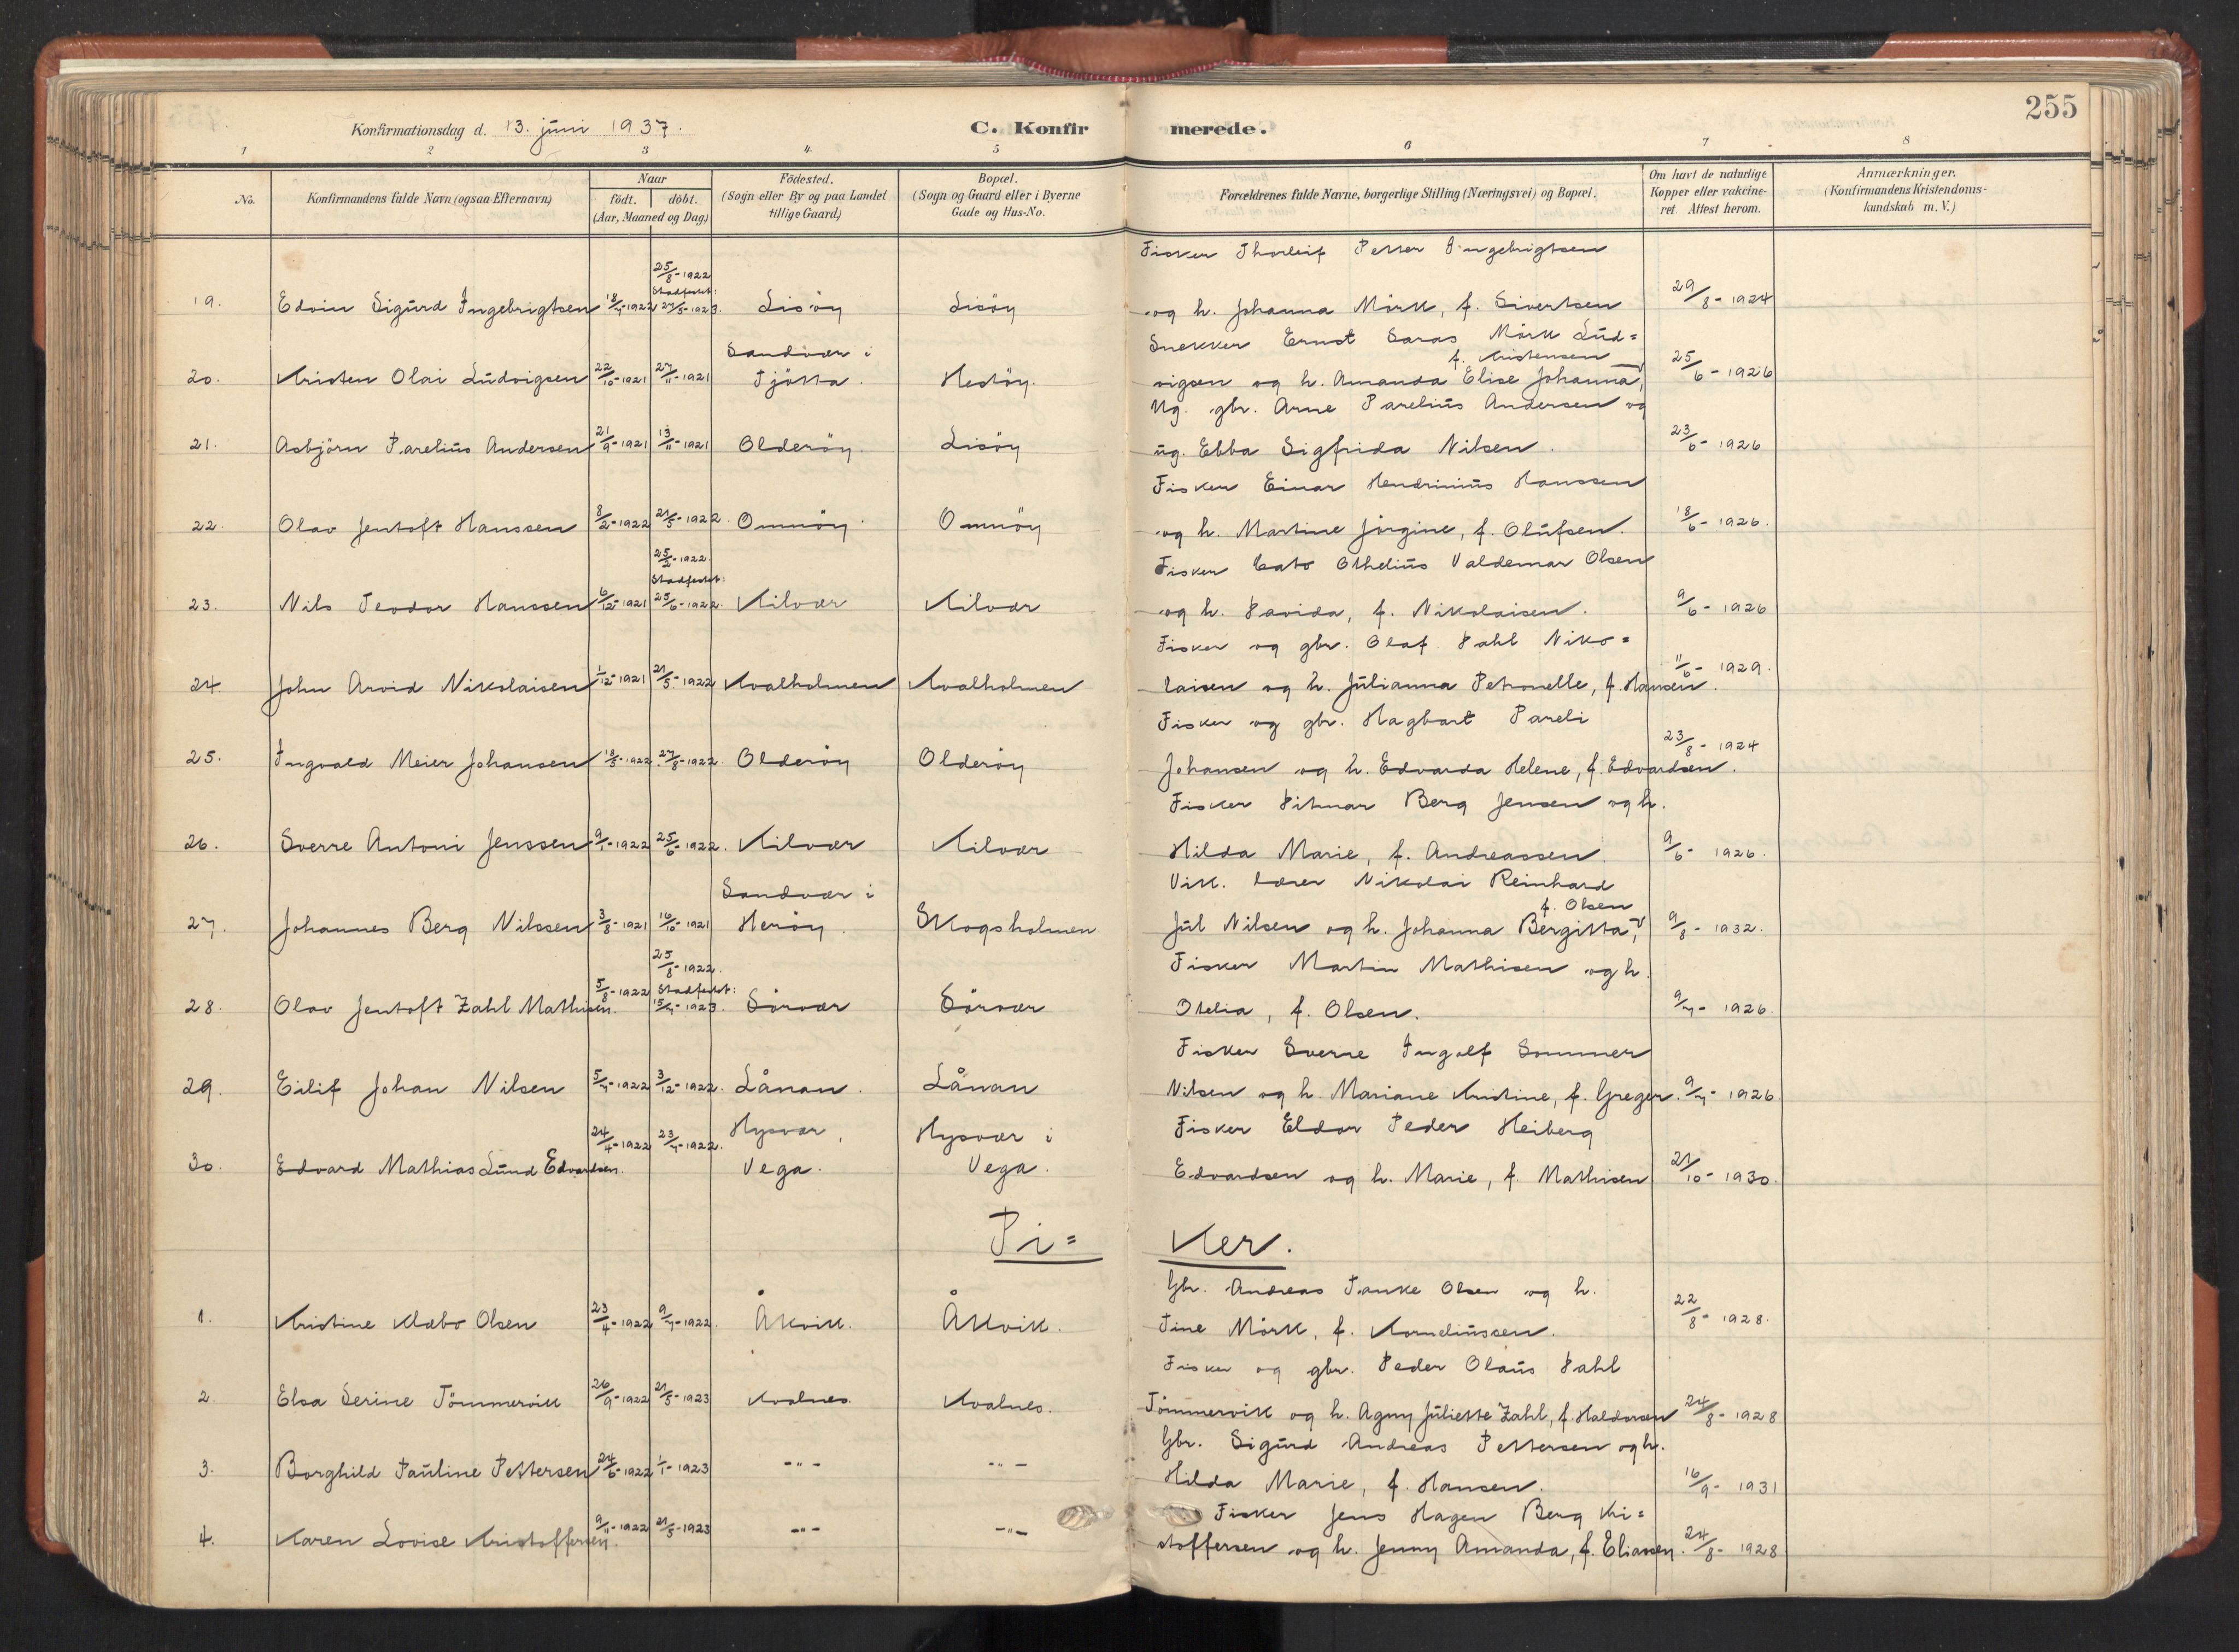 255
Konfirmationsdag d. 13. juni 1937.
C. Konfirmerede.
1 2 3 4. 5 6 7 8
No.
Konfirmandens fulde Navn (ogsaa Efternavn)
Naar
födt. döbt.
(Aar, Maaned og Dag)
Födested.
(Sogn eller By og paa Landet
tillige Gaard)
Bopæl.
(Sogn og Gaard eller i Byerne
Gade og Hus-No.
Forældrenes fulde Navne, borgerlige Stilling (Næringsvei) og Bopæl.
Om havt de naturlige
Kopper eller vakcine-
ret Attest herom.
Anmærkninger.
(Konfirmandens Kristendoms-
kundskab m. V.)
Fisker Thorleif Petter Ingebrigtsen
25/8-1922
Stadfestet:
19. Edvin Sigurd Ingebrigtsen 18/7-1922 27/5-1923. Lisöy Lisöy og h. Johanna Mörk, f. Sivertsen 29/8-1924
Snekker Ernst Saras Mörk Lud=
Sandvær i f. Kristensen
20. Kristen Olai Ludvigsen 22/10-1921 27/11-1921 Tjötta. Hestöy. vigsen og h. Amanda Elise Johanna, 25/6-1926
Ug. gbr. Arne Parelius Andersen og
21. Asbjörn Parelius Andersen 21/9-1921 13/11-1921 Olderöy. Lisöy ug. Ebba Sigfrida Nilsen. 23/6-1926
Fisker Einar Hendrinius Hanssen
22. Olav Jentoft Hanssen 8/2-1922 21/5-1922. Omnöy. Omnöy og h. Martine Jörgine, f. Olufsen. 18/6-1926.
25/2-1922 Fisker Cato Othelius Valdemar Olsen
Stadfestet:
23. Nils Teodor Hanssen 6/12-1921 25/6-1922. Kilvær Kilvær og h. Havida, f. Nikolaisen. 9/6-1926
Fisker og gbr. Olaf Dahl Niko=
24 John Arvid Nikolaisen 1/12-1921 21/5-1922 Kvalholmen Kvalholmen laisen og h. Julianna Petronelle, f. Hansen. 11/6-1929.
Fisker og gbr. Hagbart Pareli
25. Ingvald Meier Johansen 18/5-1922 27/8-1922. Olderöy Olderöy Johansen og h. Edvarda Helene, f. Edvardsen. 23/8-1924
Fisker Ditmar Berg Jensen og h.
26. Sverre Antoni Jenssen 9/1-1922 25/6-1922. Kilvær Kilvær Hilda Marie, f. Andreassen. 9/6-1926.
Vik. lærer Nikolai Reinhard
Sandvær i f. Olsen
27. Johannes Berg Nilssen 3/8-1921 16/10-1921 Heröy. Skogsholmen. Jul Nilsen og h. Johanna Bergitta, 9/8-1932.
25/8-1922. Fisker Martin Mathisen og h.
Stadfestet:
28. Olav Jentoft Zahl Mathisen. 5/8-1922 15/7-1923. Sörvær Sörvær Otelia, f. Olsen. 9/7-1926.
Fisker Sverre Ingolf Sommer
29. Eilif Johan Nilsen 5/7-1922 3/12-1922. Lånan. Lånan Nilsen og h. Mariane Kristine, f. Greger. 9/7-1926
Fisker Eldor Peder Heiberg
30. Edvard Mathias Lund Edvardsen. 24/4-1922 23/7-1922. Hysvær, Vega. Hysvær i Vega. Edvardsen og h. Marie, f. Mathisen 21/10-1930.
Pi=ker.
Gbr. Andreas Tanke Olsen og h.
1. Kristine Klæbo Olsen 23/4-1922 9/7-1922. Åkvik. Åkvik. Tine Mörk, f. Korneliussen. 22/8-1928.
Fisker og gbr. Peder Olaus Dahl
2. Elsa Serine Tömmervik 26/9-1922 21/5-1923 Kvalnes. Kvalnes. Tömmervik og h. Agny Juliette Zahl, f. Haldorsen 24/8-1928
Gbr. Sigurd Andreas Pettersen og h.
3. Borghild Pauline Pettersen 24/6-1922 1/1-1923 -"- -"- Hilda Marie, f. Hansen. 16/9-1931
Fisker Jens Hagen Berg Kri=
4. Karen Lovise Kristoffersen. 9/11-1922 21/5-1923 -"- -"- stoffersen og h. Jenny Amanda, f. Eliassen. 24/8-1928